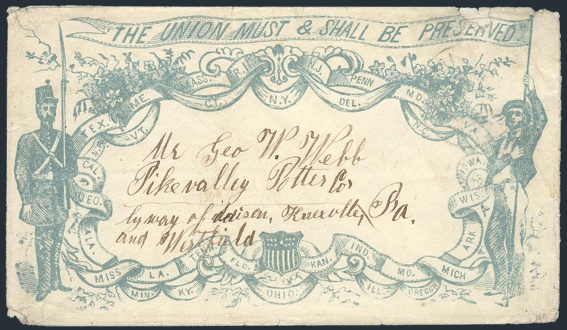 "THE UNION MUST & SHALL BE PRESERVED"
TEX. ME. MASS. R.I. N.J. PENN MD.
VT. CT. N.Y. DEL. N.C.
CAL.
GEO.
ALA.
IOWA.
WIS
ARK
Mr Geo W. Webb
Pikevalley Potter Co
by way of Kneeville, Pa.
and Westfield
MISS LA. FLD. KAN. IND. MO. MICH
MIN. KY. OHIO. ILL. OREGON